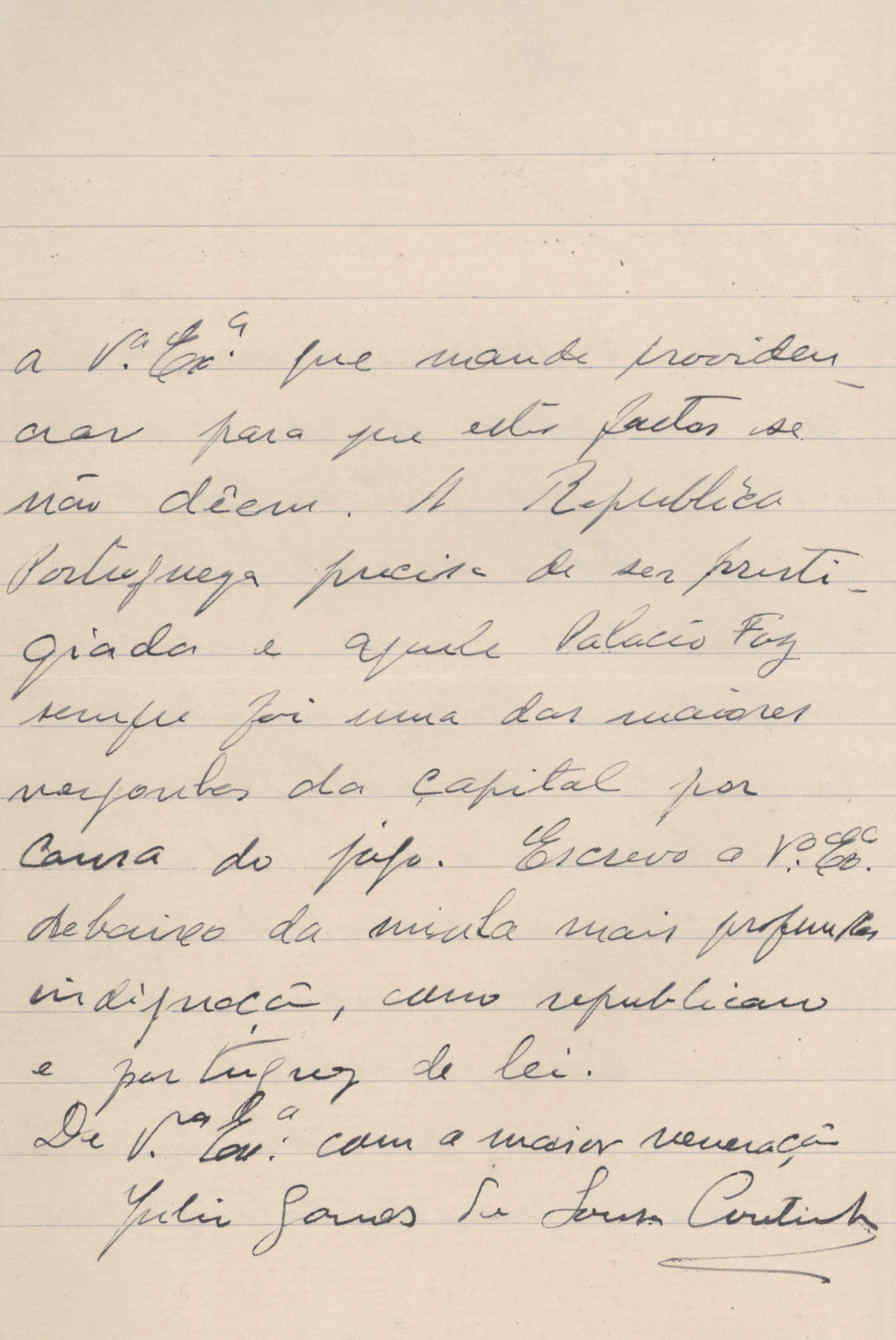 a V.ª Ex.ª que mande providen_
ciar para que estes factos se
não dêem. A Republica
Portugueza precisa de ser presti_
giada e aquele Palacio Foz
sempre foi uma das maiores
vergonhas da Capital por
causa do jogo. Escrevo a V.ª Ex.ª
debaixo da minha mais profunda
indignação, como republicano
e portuguez de lei.
De V.ª Ex.ª com a maior veneração
Julio Gomes de Sousa Coutinho